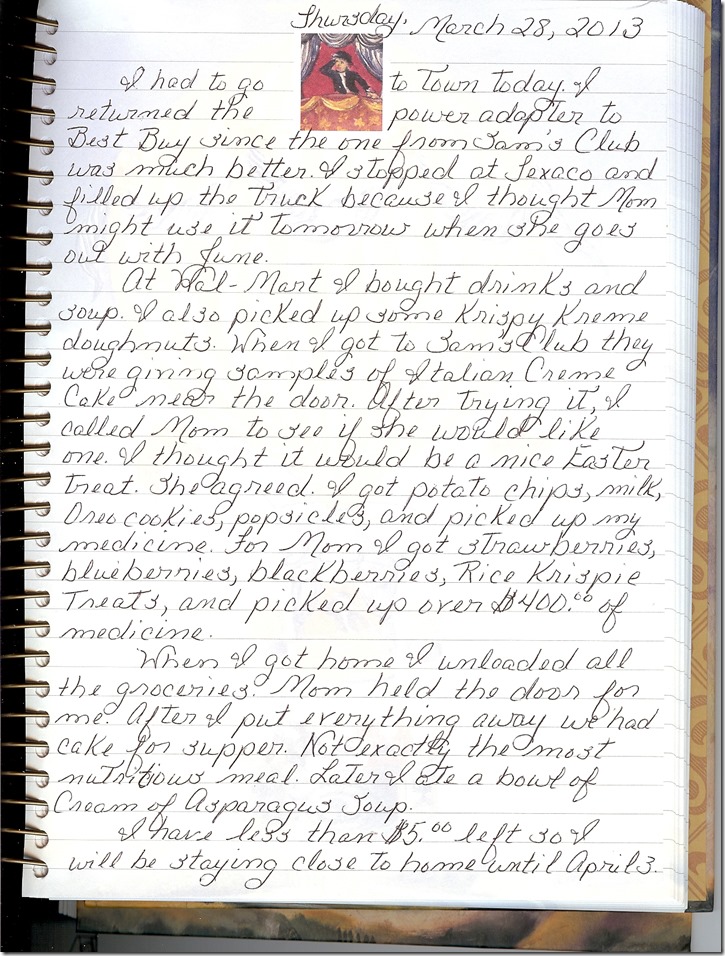 Thursday, March 28, 2013
I had to go to Town Today. I
returned the power adapter to
Best Buy since the one from Sam's Club
was much better. I stopped at Texaco and
filled up the Truck because I thought Mom
might use it Tomorrow when she goes
out with June.
At Wal-Mart I bought drinks and
soup. I also picked up some Krispy Kreme
doughnuts. When I got to Sam's Club they
were giving samples of Italian Creme
Cake near the door. After Trying iT, I
called Mom to see if she would like
one. I thought it would be a nice Easter
Treat. She agreed. I got potato chips, milk,
Oreo cookies, popsicles, and picked up my
medicine. For Mom I got strawberries,
blueberries, blackberries, Rice Krispie
Treats, and picked up over $400.00 of
medicine.
When I got home I unloaded all
the groceries. Mom held the door for
me. After I put everything away we had
cake for supper. Not exactly the most
nutritious meal. Later I ate a bowl of
Cream of Asparagus Soup.
I have less than $5.00 left so I
will be staying close to home until April 3.